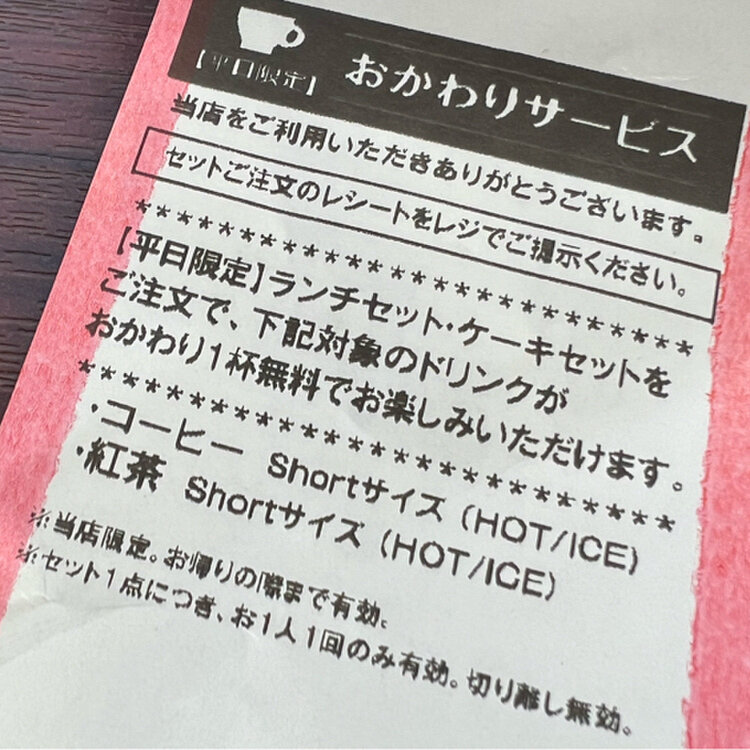 【平日限定】 おかわりサービス
当店をご利用いただきありがとうございます。
セットご注文のレシートをレジでご提示ください。
**************************
【平日限定】ランチセット・ケーキセットを
ご注文で、下記対象のドリンクが
おかわり1杯無料でお楽しみいただけます。
**************************
・コーヒー Shortサイズ (HOT/ICE)
・紅茶 Shortサイズ (HOT/ICE)
※当店限定。お帰りの際まで有効。
※セット1点につき、お1人1回のみ有効。切り離し無効。